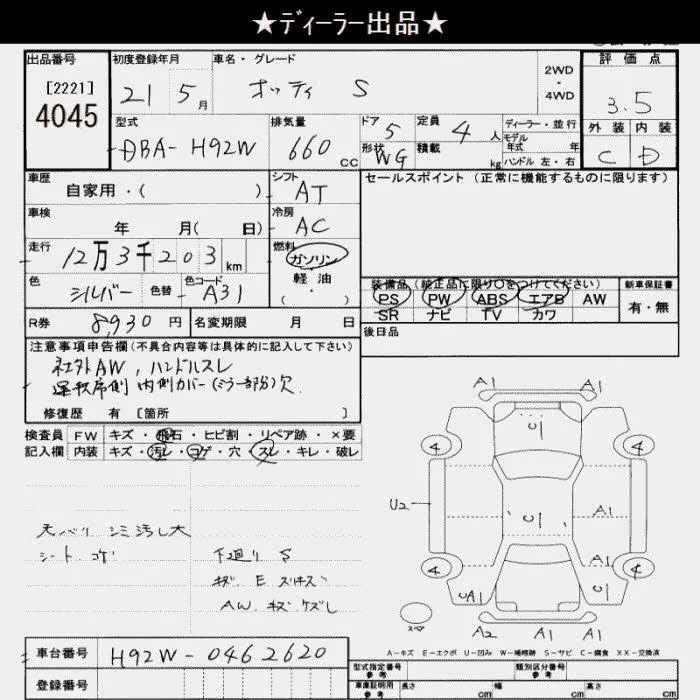 ★ディーラー出品★
出品番号
[2221]
4045
初度登録年月
21 5月
車名・グレード
オッティ S
2WD
・
4WD
評価点
3.5
外装 内装
C D
型式
DBA- H92W
排気量
660 cc
ドア 5
形状 WG
定員 4人
積載 kg
ディーラー・並行
モデル年式 年
ハンドル 左・右
車歴
自家用・( )
シフト
AT
セールスポイント (正常に機能するものに限ります)
車検
年 月( 日)
冷房
AC
走行
12万3千203km
燃料
ガソリン
軽油
( ・ )
色
シルバー
色替
色コード
A31
装備品(純正品に限り○をつけてください)
PS PW ABS エアB AW
SR ナビ TV カワ
新車保証書
有・無
R券 8,930円
名変期限 月 日
後日品
注意事項申告欄(不具合内容等は具体的に記入して下さい)
社外AW, ハンドルスレ
運転席側 内側カバー(ミラー部分)欠
修復歴 有 [箇所 ]
検査員
記入欄
FW キズ・飛石・ヒビ割・リペア跡・×要
内装 キズ・汚レ・コゲ・穴・スレ・キレ・破レ
天バリ シミ汚レ大
シート コゲ
下廻り S
キズ E スリキズ
AW. キズ ケズレ
A1 A1
U1
4 4
U2
U1
A1
A1
4 4
UA1
U1
スペア
A2 A1 A1
A-キズ E-エクボ U-凹み W-補修跡 S-サビ C-腐食 XX-交換済
車台番号
H92W-0462620
登録番号
型式指定番号
参考
類別区分番号
参考
車庫証明用
参考
長さ cm
幅 cm
高さ cm